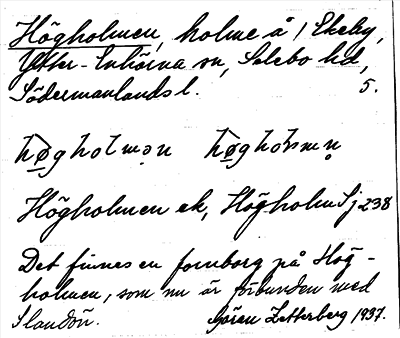 Högholmen, holme å 1 Ekeby,
Ytter-Enhörna sn, Selebo hd,
Södermanlands l. 5.
högholmən
Högholmen ek, Högholm Sj 238
Det finnes en fornborg på Hög-
holmen, som nu är förbunden med
Slandön. Sören Zetterberg 1937.